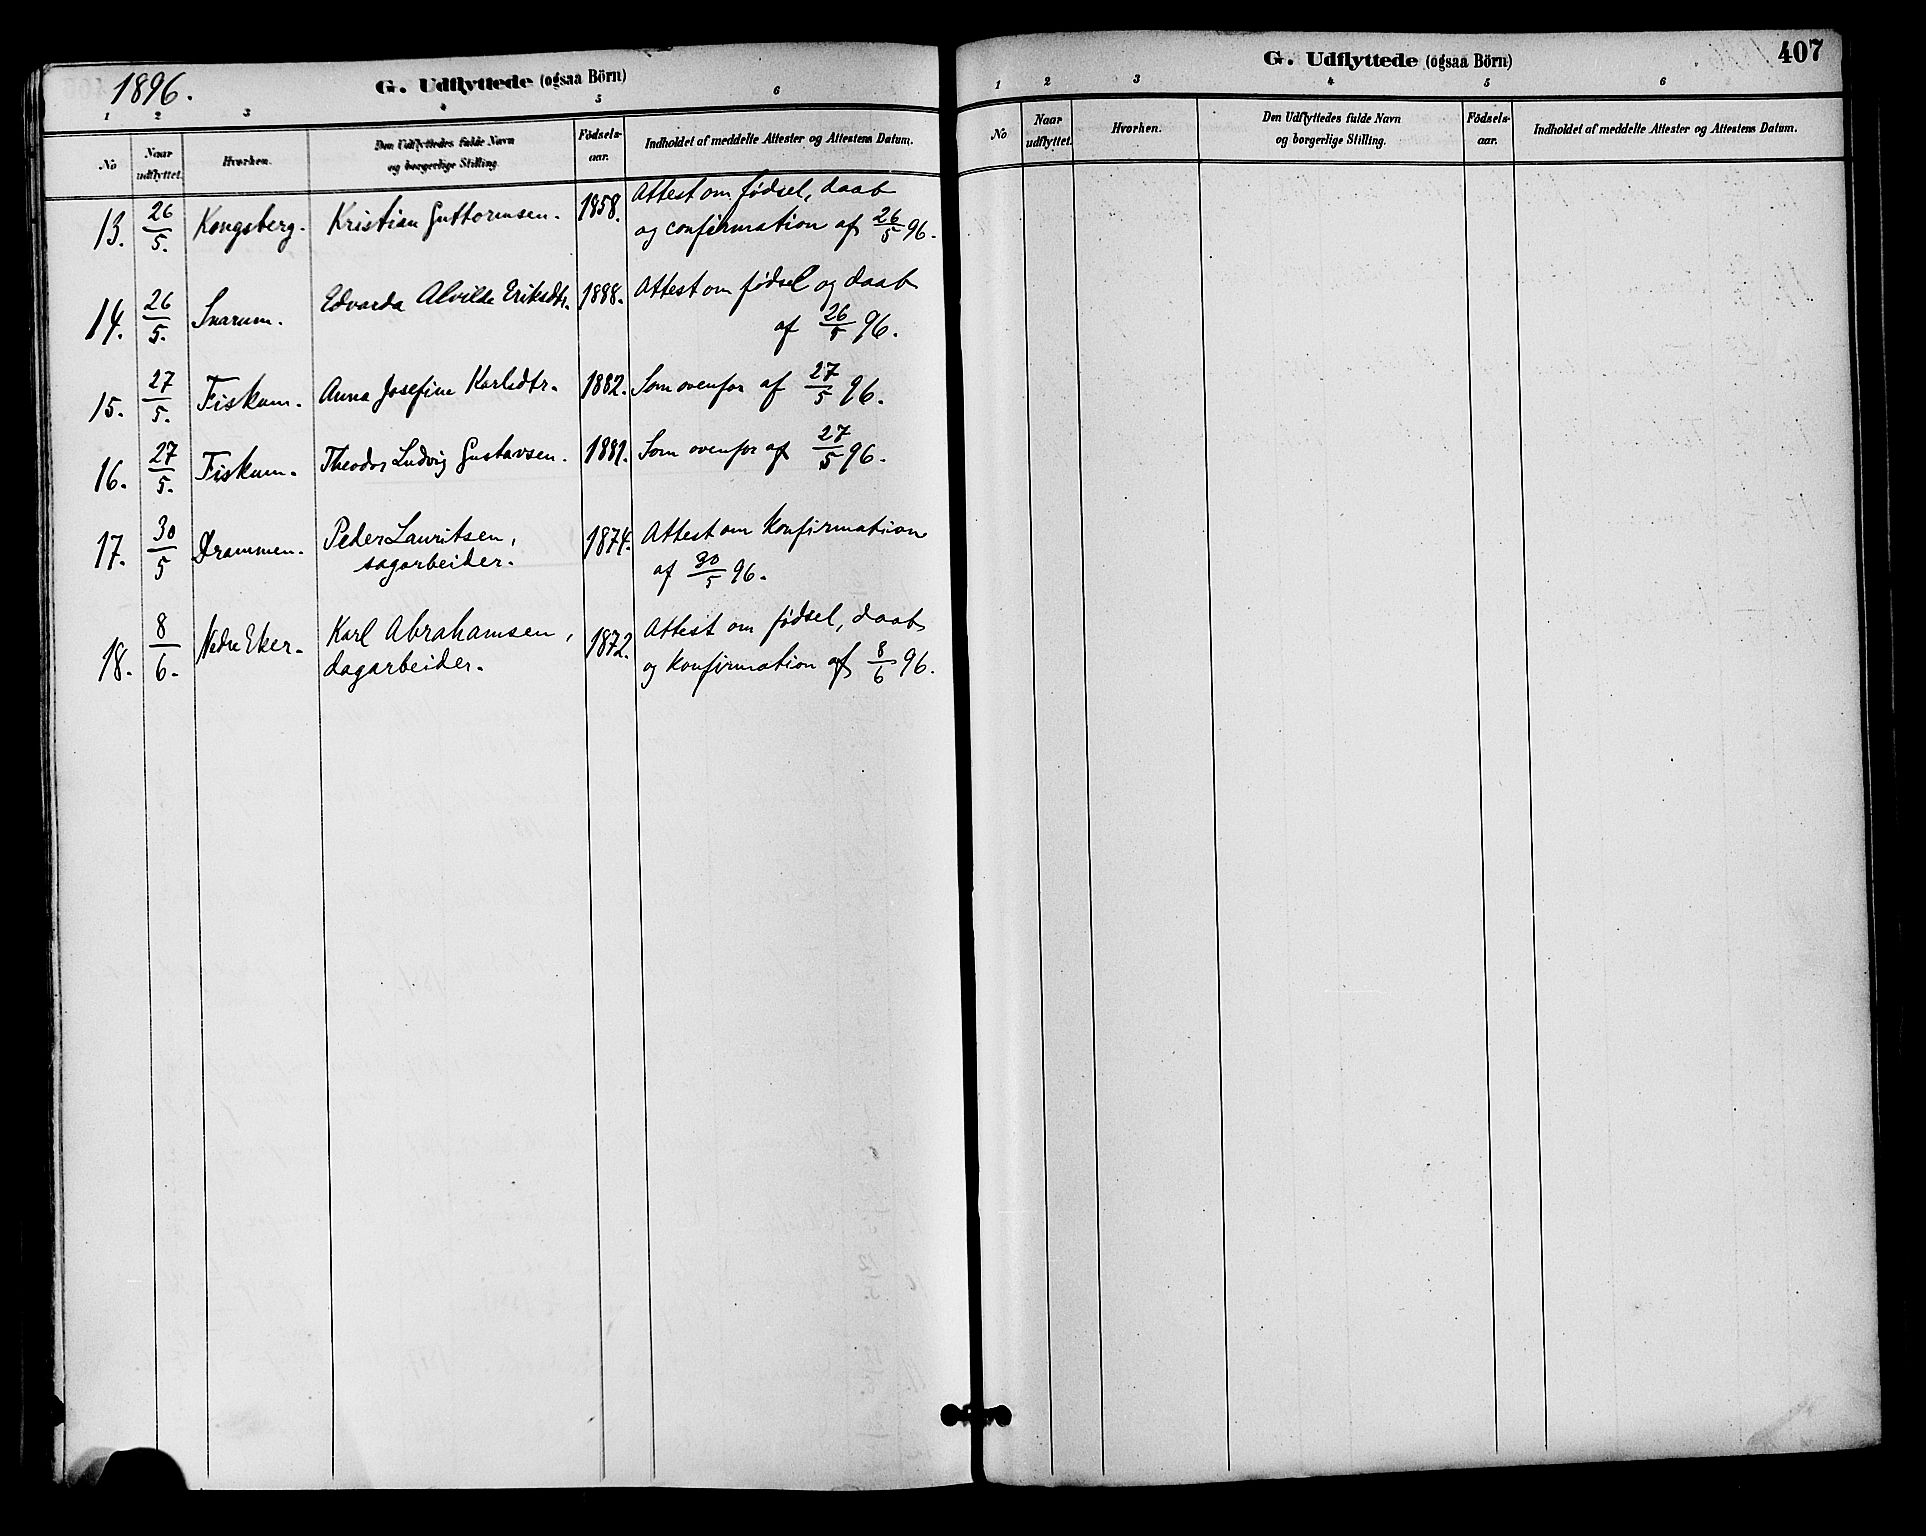 1896.
G. Udflyttede (ogsaa Börn)
1 2 3 4 5 6
No Naar udflyttet. Hvorhen. Den Udflyttedes fulde Navn og borgerlige Stilling. Födsels-aar. Indholdet af meddelte Attester og Attestens Datum.
13. 26/5. Kongsberg. Kristian Guttormsen. 1858. Attest om fødsel, daab
og confirmation af 26/5 96.
14. 26/5. Snarum. Edvarda Alvilde Eriksdtr. 1888. Attest om fødsel og daab
af 26/5 96.
15. 27/5. Fiskum. Anna Josefine Karlsdtr. 1882. Som ovenfor af 27/5 96.
16. 27/5. Fiskum. Theodor Ludvig Gustavsen. 1881. Som ovenfor af 27/5 96.
17. 30/5 Drammen. Peder Lauritsen, 1874. Attest om konfirmation
sagarbeider. af 30/5 96.
18. 8/6. Nedre Eker. Karl Abrahamsen, 1872. Attest om fødsel, daab
dagarbeider. og konfirmation af 8/6 96.
407
G. Udflyttede (ogsaa Börn)
1 2 3 4 5 6
No Naar udflyttet. Hvorhen. Den Udflyttedes fulde Navn og borgerlige Stilling. Födsels-aar. Indholdet af meddelte Attester og Attestens Datum.